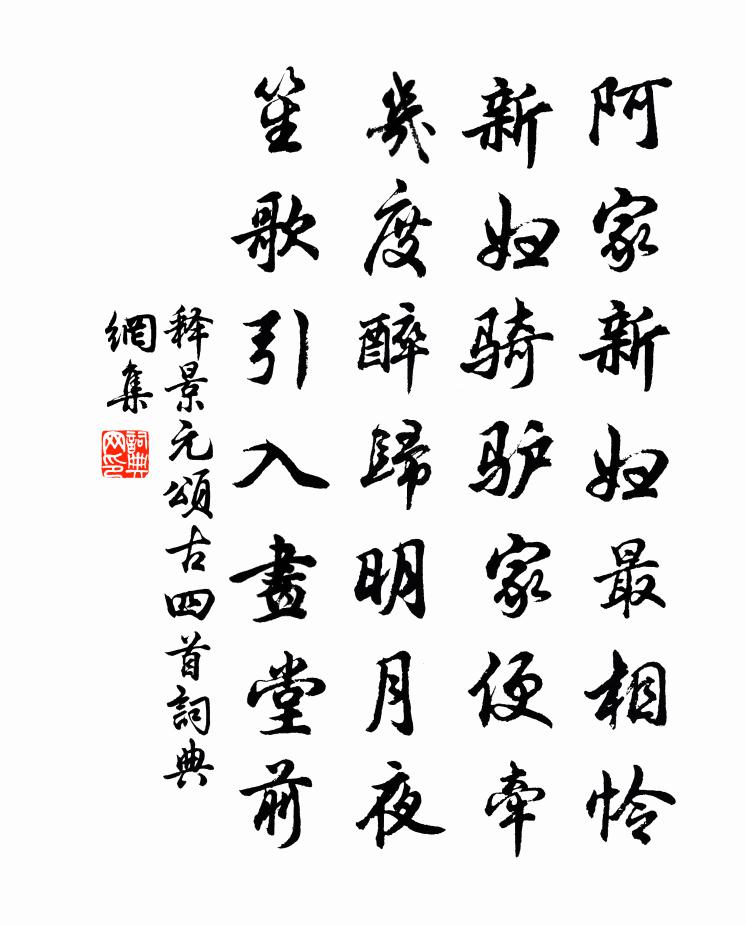 阿家新妇最相怜
新妇骑驴家便牵
几度醉歸明月夜
笙歌引入畫堂前
释景元頌古四首詞典
網集
詞典
网印